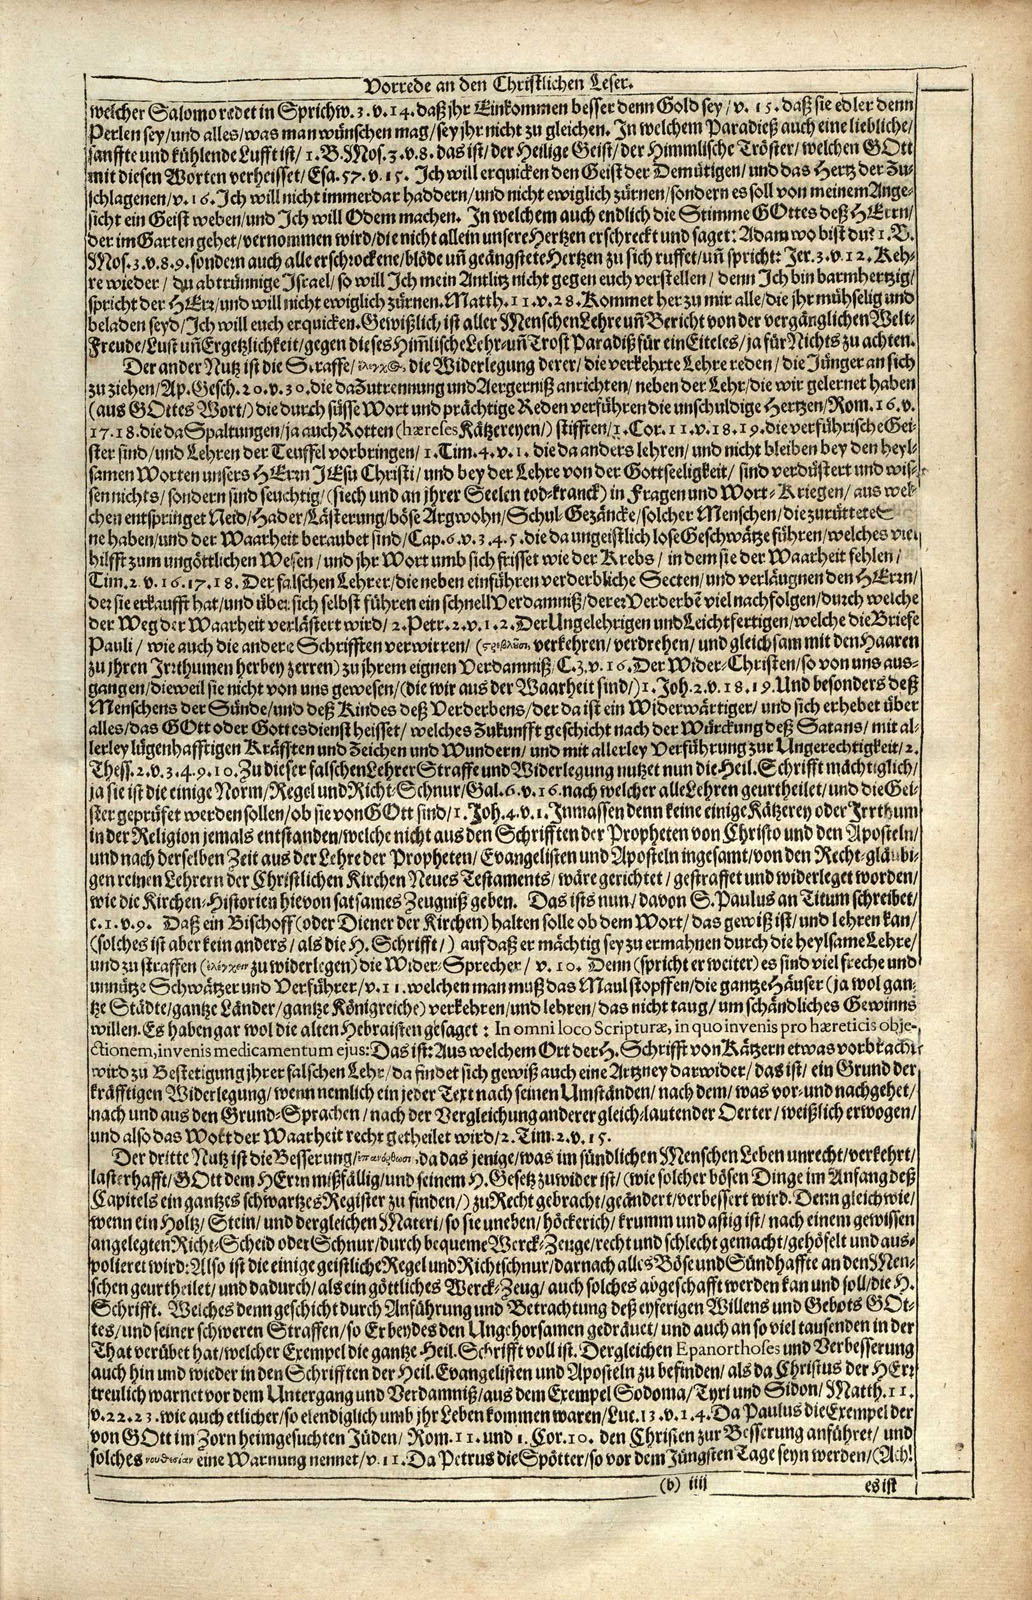 Vorrede an den Christlichen Leser.
welcher Salomo redet in Sprichw. 3. v. 14. daß jhr Einkommen besser denn Gold sey/ v. 15. daß sie edler denn
Perlen sey/ und alles/ was man wünschen mag/ sey jhr nicht zu gleichen. In welchem Paradieß auch eine liebliche/
sanffte und kühlende Lufft ist/ 1. B. Mos. 3. v. 8. das ist/ der Heilige Geist/ der Himmlische Tröster/ welchen GOtt
mit diesen Worten verheisset/ Esa. 57. v. 15. Ich will erquicken den Geist der Demütigen/ und das Hertz der Zu-
schlagenen/ v. 16. Ich will nicht immerdar haddern/ und nicht ewiglich zürnen/ sondern es soll von meinem Ange-
sicht ein Geist weben/ und Ich will Odem machen. In welchem auch endlich die Stimme GOttes deß HErrn/
der im Garten gehet/ vernommen wird/ die nicht allein unsere Hertzen erschreckt und saget: Adam wo bist du? 1. B.
Mos. 3. v. 8. 9. sondern auch alle erschrockene/ blöde uñ geängstete Hertzen zu sich ruffet/ uñ spricht: Jer. 3. v. 12. Keh-
re wieder/ du abtrünnige Israel/ so will Ich mein Antlitz nicht gegen euch verstellen/ denn Ich bin barmhertzig/
spricht der HErr/ und will nicht ewiglich zürnen. Matth. 11. v. 28. Kommet her zu mir alle/ die jhr mühselig und
beladen seyd/ Ich will euch erquicken. Gewißlich/ ist aller Menschen Lehre uñ Bericht von der vergänglichen Welt-
Freude/ Lust uñ Ergetzlichkeit/ gegen dieses Him̃lische Lehr- uñ Trost Paradiß für ein Eiteles/ ja für Nichts zu achten.
Der ander Nutz ist die Straffe/ ἔλεγχ⊙, die Widerlegung derer/ die verkehrte Lehre reden/ die Jünger an sich
zu ziehen/ Ap. Gesch. 20. v. 30. die da Zutrennung und Aergerniß anrichten/ neben der Lehr/ die wir gelernet haben
(aus GOttes Wort/) die durch süsse Wort und prächtige Reden verführen die unschuldige Hertzen/ Rom. 16. v.
17. 18. die da Spaltungen/ ja auch Rotten (hæreses Kätzereyen/) stifften/ 1. Cor. 11. v. 18. 19. die verführische Gei-
ster sind/ und Lehren der Teuffel vorbringen/ 1. Tim. 4. v. 1. die da anders lehren/ und nicht bleiben bey den heyl-
samen Worten unsers HErrn JEsu Christi/ und bey der Lehre von der Gottseeligkeit/ sind verdüstert und wis-
sen nichts/ sondern sind seuchtig/ (siech und an jhrer Seelen tod-kranck) in Fragen und Wort-Kriegen/ aus wel-
chen entspringet Neid/ Hader/ Lästerung/ böse Argwohn/ Schul-Gezäncke/ solcher Menschen/ die zurüttete S
ne haben/ und der Waarheit beraubet sind/ Cap. 6. v. 3. 4. 5. die da ungeistlich lose Geschwätze führen/ welches viel
hilfft zum ungöttlichen Wesen/ und jhr Wort umb sich frisset wie der Krebs/ in dem sie der Waarheit fehlen/
Tim. 2. v. 16. 17. 18. Der falschen Lehrer/ die neben einführen verderbliche Secten/ und verläugnen den HErrn/
der sie erkaufft hat/ und über sich selbst führen ein schnell Verdamniß/ derer Verderbẽ viel nachfolgen/ durch welche
der Weg der Waarheit verlästert wird/ 2. Petr. 2. v. 1. 2. Der Ungelehrigen und Leichtfertigen/ welche die Briefe
Pauli/ wie auch die andere Schrifften verwirren/ (στρεβλοῦσιν verkehren/ verdrehen/ und gleichsam mit den Haaren
zu jhren Irrthumen herbey zerren) zu jhrem eignen Verdamniß/ C. 3. v. 16. Der Wider-Christen/ so von uns aus-
gangen/ dieweil sie nicht von uns gewesen/ (die wir aus der Waarheit sind/) 1. Joh. 2. v. 18. 19. Und besonders deß
Menschens der Sünde/ und deß Kindes deß Verderbens/ der da ist ein Widerwärtiger/ und sich erhebet über
alles/ das GOtt oder Gottesdienst heisset/ welches Zukunfft geschicht nach der Würckung deß Satans/ mit al-
lerley lügenhafftigen Kräfften und Zeichen und Wundern/ und mit allerley Verführung zur Ungerechtigkeit/ 2.
Thess. 2. v. 3. 4. 9. 10. Zu dieser falschen Lehrer Straffe und Widerlegung nutzet nun die Heil. Schrifft mächtiglich/
ja sie ist die einige Norm/ Regel und Richt-Schnur/ Gal. 6. v. 16. nach welcher alle Lehren geurtheilet/ und die Gei-
ster geprüfet werden sollen/ ob sie von GOtt sind/ 1. Joh. 4. v. 1. Inmassen denn keine einige Kätzerey oder Irrthum
in der Religion jemals entstanden/ welche nicht aus den Schrifften der Propheten von Christo und den Aposteln/
und nach derselben Zeit aus der Lehre der Propheten/ Evangelisten und Aposteln ingesamt/ von den Recht-gläubi-
gen reinen Lehrern der Christlichen Kirchen Neues Testaments/ wäre gerichtet/ gestraffet und widerleget worden/
wie die Kirchen-Historien hievon satsames Zeugniß geben. Das ists nun/ davon S. Paulus an Titum schreibet/
c. 1. v. 9. Daß ein Bischoff (oder Diener der Kirchen) halten solle ob dem Wort/ das gewiß ist/ und lehren kan/
(solches ist aber kein anders/ als die H. Schrifft/) auf daß er mächtig sey zu ermahnen durch die heylsame Lehre/
und zu straffen (ἐλέγχειν zu widerlegen) die Wider-Sprecher/ v. 10. Denn (spricht er weiter) es sind viel freche und
unnütze Schwätzer und Verführer/ v. 11. welchen man muß das Maul stopffen/ die gantze Häuser (ja wol gan-
tze Städte/ gantze Länder/ gantze Königreiche) verkehren/ und lehren/ das nicht taug/ um schändliches Gewinns
willen. Es haben gar wol die alten Hebraisten gesaget: In omni loco Scripturæ, in quo invenis pro hæreticis obje-
ctionem, invenis medicamentum ejus: Das ist: Aus welchem Ort der H. Schrifft von Kätzern etwas vorbracht
wird zu Bestetigung jhrer falschen Lehr/ da findet sich gewiß auch eine Artzney darwider/ das ist/ ein Grund der
kräfftigen Widerlegung/ wenn nemlich ein jeder Text nach seinen Umständen/ nach dem/ was vor- und nachgehet/
nach und aus den Grund-Sprachen/ nach der Vergleichung anderer gleich-lautender Oerter/ weißlich erwogen/
und also das Wort der Waarheit recht getheilet wird/ 2. Tim. 2. v. 15.
Der dritte Nutz ist die Besserung/ ἐπανόρθωσις, da das jenige/ was im sündlichen Menschen Leben unrecht/ verkehrt/
lasterhafft/ GOtt dem HErrn mißfällig/ und seinem H. Gesetz zuwider ist/ (wie solcher bösen Dinge im Anfang deß
Capitels ein gantzes schwartzes Register zu finden/) zu Recht gebracht/ geändert/ verbessert wird. Denn gleich wie/
wenn ein Holtz/ Stein/ und dergleichen Materi/ so sie uneben/ höckerich/ krumm und astig ist/ nach einem gewissen
angelegten Richt-Scheid oder Schnur/ durch bequeme Werck-Zeuge/ recht und schlecht gemacht/ gehöfelt und aus-
polieret wird: Also ist die einige geistliche Regel und Richtschnur/ darnach alles Böse und Sündhaffte an den Men-
schen geurtheilet/ und dadurch/ als ein göttliches Werck-Zeug/ auch solches abgeschafft werden kan und soll/ die H.
Schrifft. Welches denn geschicht durch Anführung und Betrachtung deß eyferigen Willens und Gebots GOt-
tes/ und seiner schweren Straffen/ so Er beydes den Ungehorsamen gedräuet/ und auch an so viel tausenden in der
That verübet hat/ welcher Exempel die gantze Heil. Schrifft voll ist. Dergleichen Epanorthoses und Verbesserung
auch hin und wieder in den Schrifften der Heil. Evangelisten und Aposteln zu befinden/ als da Christus der HErr
treulich warnet vor dem Untergang und Verdamniß/ aus dem Exempel Sodoma/ Tyri und Sidon/ Matth. 11.
v. 22. 23. wie auch etlicher/ so elendiglich umb jhr Leben kommen waren/ Luc. 13. v. 1. 4. Da Paulus die Exempel der
von GOtt im Zorn heimgesuchten Jüden/ Rom. 11. und 1. Cor. 10. den Christen zur Besserung anführet/ und
solches νουθεσίαν eine Warnung nennet/ v. 11. Da Petrus die Spötter/ so vor dem Jüngsten Tage seyn werden/ (Ach!
(b) iiij
es ist